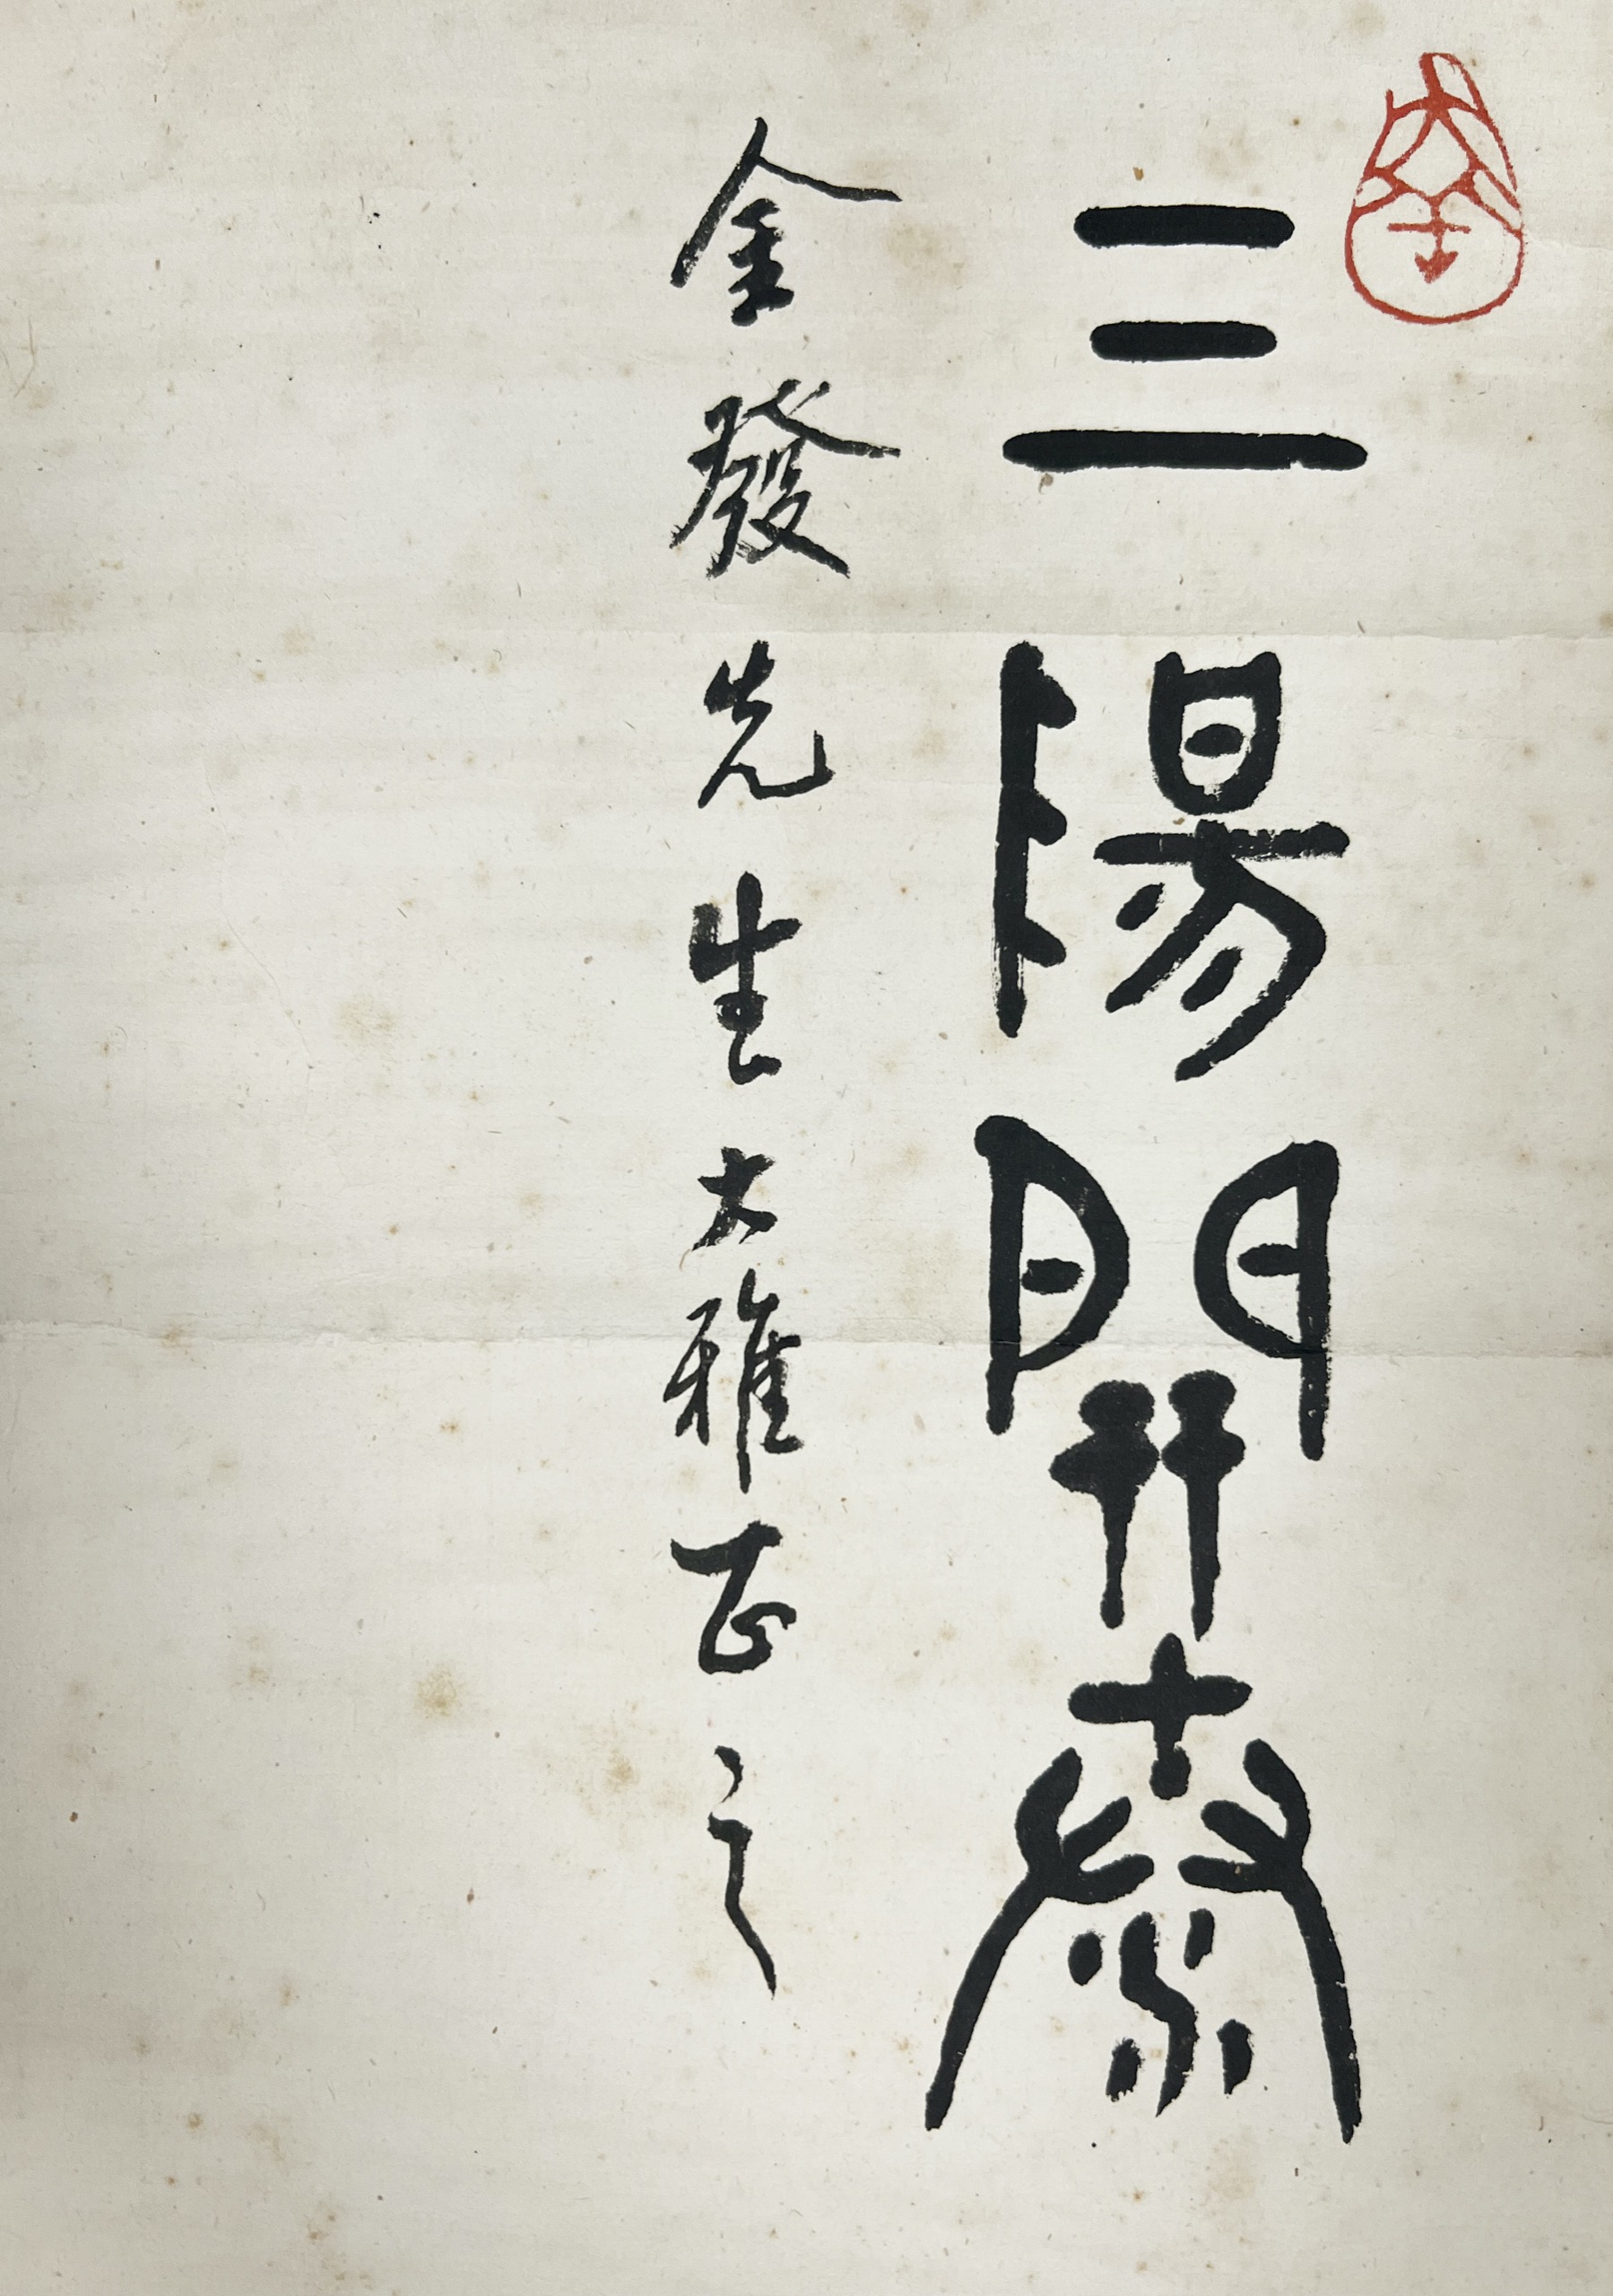 三陽開泰
金發先生大雅正之